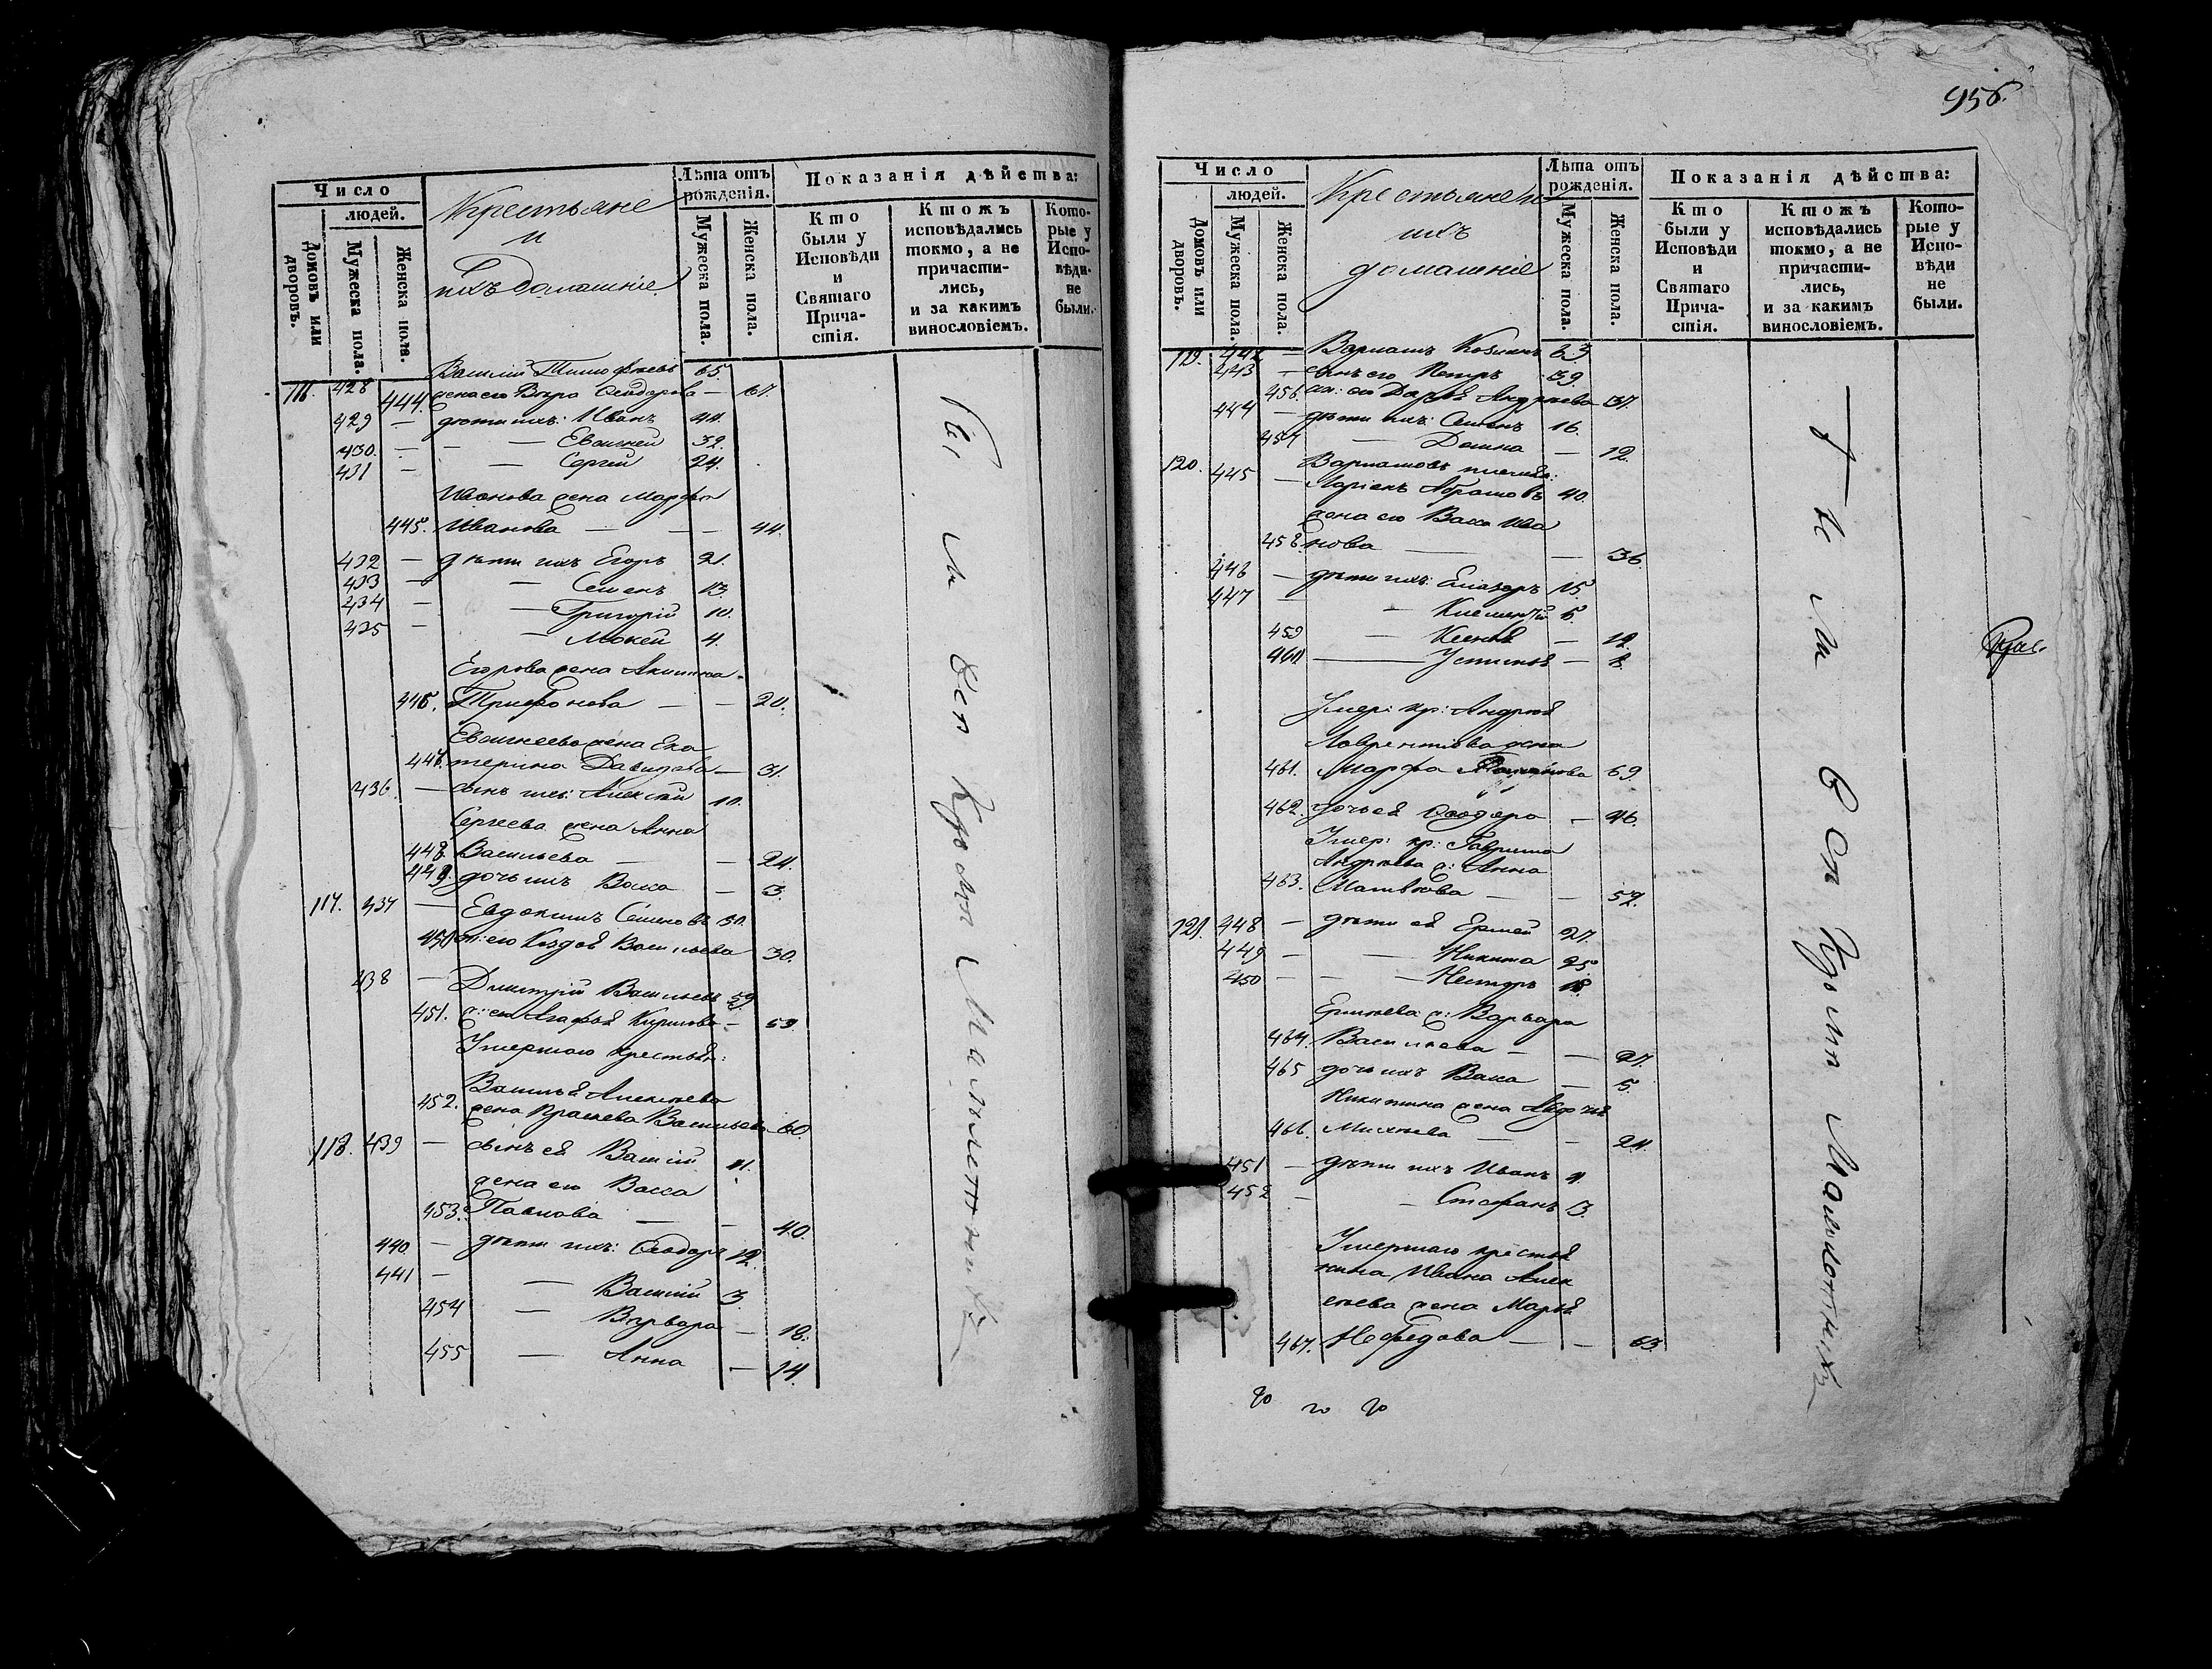 Число
людей.
Домовъ или дворовъ.
Мужеска пола.
Женска пола.
Крестьяне
и
ихъ домашніе.
Лѣта отъ рожденія.
Мужеска пола.
Женска пола.
Показанія дѣйства:
Кто были у Исповѣди и Святаго Причастія.
Ктожъ исповѣдались токмо, а не причастились, и за какимъ винословіемъ.
Которые у Исповѣди не были.
116. 428 Василій Тимофѣевъ 65.
444. жена его Вѣра Ѳеодорова — 67.
429 — дѣти ихъ: Иванъ 44.
430. — — Евсигней 32.
431 — — Сергій 24.
Иванова жена Марфа
445. Иванова — — — 44.
432 — дѣти ихъ Егоръ 21.
433 — — Семенъ 13.
434 — — Григорій 10.
435 — — Мокей 4.
Егорова жена Акилина
446. Трифонова — — 20.
Евсигнеева жена Ека
447. терина Давидова — 31.
436. — сынъ ихъ: Алексѣй 10.
Сергеева жена Анна
448. Васильева — — 24.
449. дочь ихъ Васса — 3.
117. 437 — Евдокимъ Семеновъ 30.
450 ж: его Васильева 30.
438 — Димитрій Васильевъ 59
451. ж: его Агафья Кирилова — 59.
Умершаго крестьян:
Василья Алексѣева
452. жена Васильева 60.
118. 439 — сынъ ея Василій 41.
жена его Васса
453. Павлова — — 40.
440 — дѣти ихъ: Ѳеодоръ 12.
441 — — Василій 3
454 — Варвара — 18.
455 — Анна — 14.
Тѣ ли всѣ Кромѣ Малолѣтнихъ
956.
Число
людей.
Домовъ или дворовъ.
Мужеска пола.
Женска пола.
Крестьяне и
ихъ
домашніе
Лѣта отъ рожденія.
Мужеска пола.
Женска пола.
Показанія дѣйства:
Кто были у Исповѣди и Святаго Причастія.
Ктожъ исповѣдались токмо, а не причастились, и за какимъ винословіемъ.
Которые у Исповѣди не были.
119. 442 — 63
443 — сынъ его Петръ 39.
456. жен: его Дарья Андреева 37.
444 — дѣти ихъ: Семенъ 16.
457 — Домна — 12.
120. 445 —
Абрамовъ 40.
жена его Васса Ива
458 нова — — 36
446 — дѣти ихъ: Елизаръ 15.
447 — — Климентій 5.
459 — Ксенія — 12.
460 — Устинья —
Умер: кр: Андрея
Лаврентіева жена
461. Марфа 69.
462. дочь ея Ѳеодора — 46.
Умер: кр: Гаврила
Андреева ж: Анна
463. Матвѣева — — 52.
121. 448 — дѣти ея Ермей 27.
449 — — Никита 25.
450 — — Несторъ 18.
Ермѣева ж: Варвара
464. Васильева — — 27.
465 дочь ихъ Васса — 5.
Никитина жена Авдотья
466. Михѣева — — 24.
451 — дѣти ихъ Иванъ 4.
452 — — Стефанъ 3.
Умершаго крестья
нина Ивана Алек
сѣева жена Марья
467. Нефедова — — 63.
Тѣ ли всѣ Кромѣ Малолѣтнихъ